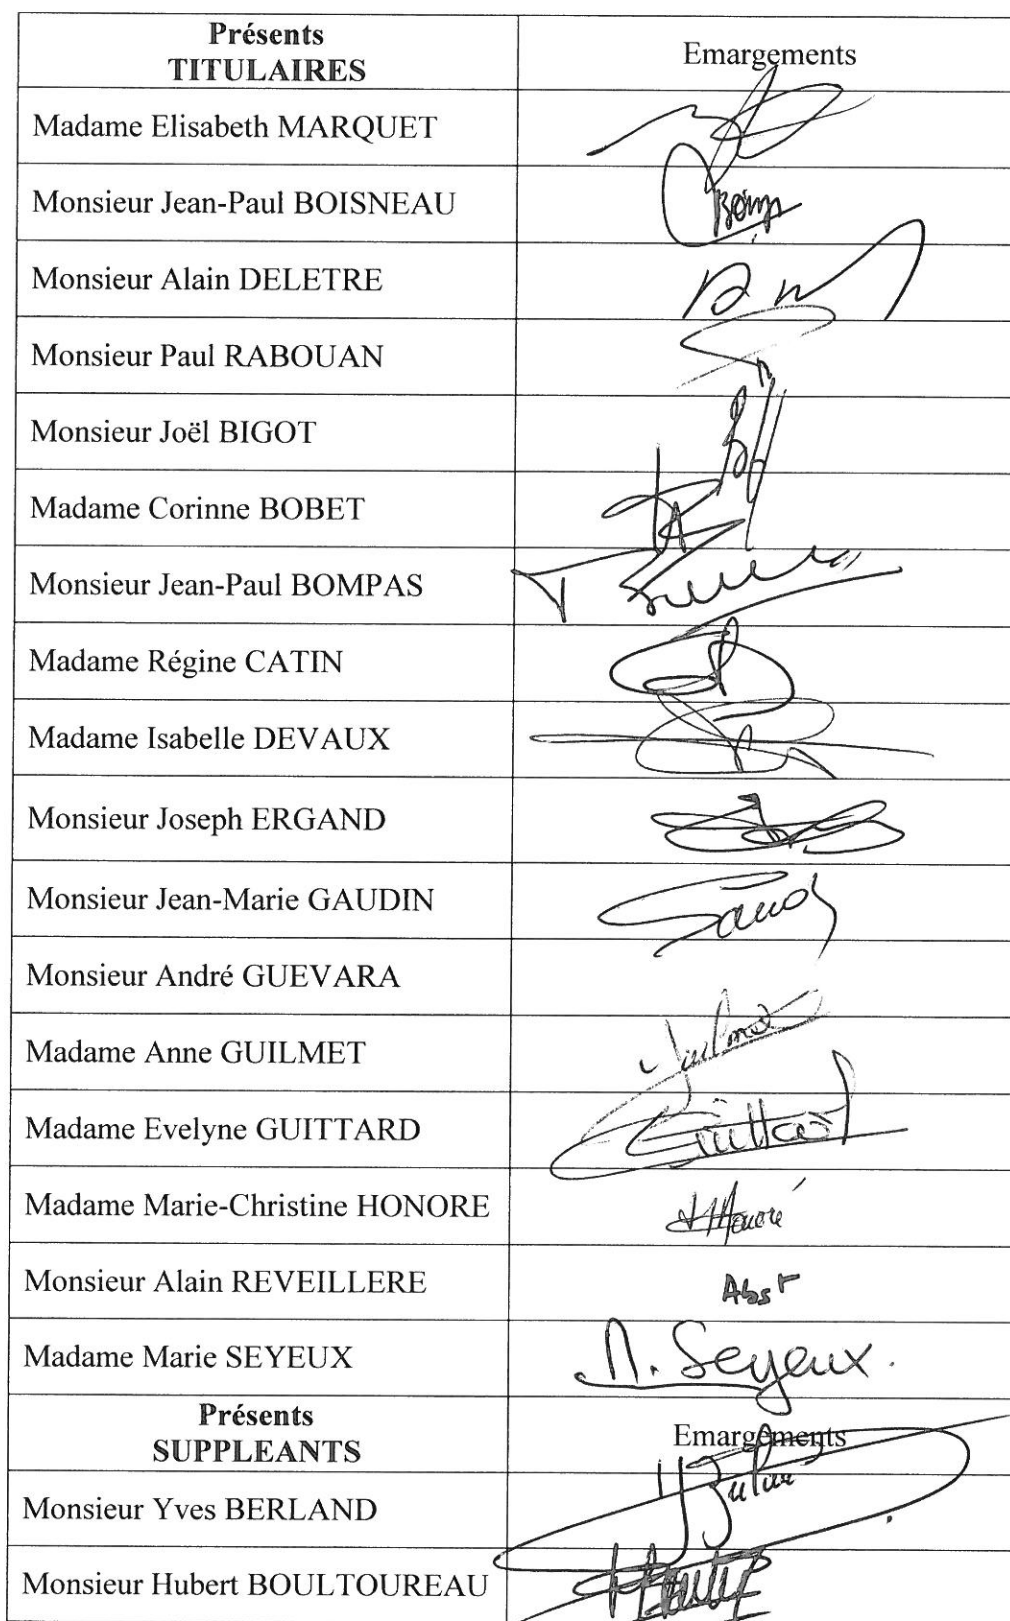 Présents
TITULAIRES
Emargements
Madame Elisabeth MARQUET
Monsieur Jean-Paul BOISNEAU
Monsieur Alain DELETRE
Monsieur Paul RABOUAN
Monsieur Joël BIGOT
Madame Corinne BOBET
Monsieur Jean-Paul BOMPAS
Madame Régine CATIN
Madame Isabelle DEVAUX
Monsieur Joseph ERGAND
Monsieur Jean-Marie GAUDIN
Monsieur André GUEVARA
Madame Anne GUILMET
Madame Evelyne GUITTARD
Madame Marie-Christine HONORE
Monsieur Alain REVEILLERE Abst
Madame Marie SEYEUX M. Seyeux.
Présents
SUPPLEANTS
Emargements
Monsieur Yves BERLAND
Monsieur Hubert BOULTOUREAU